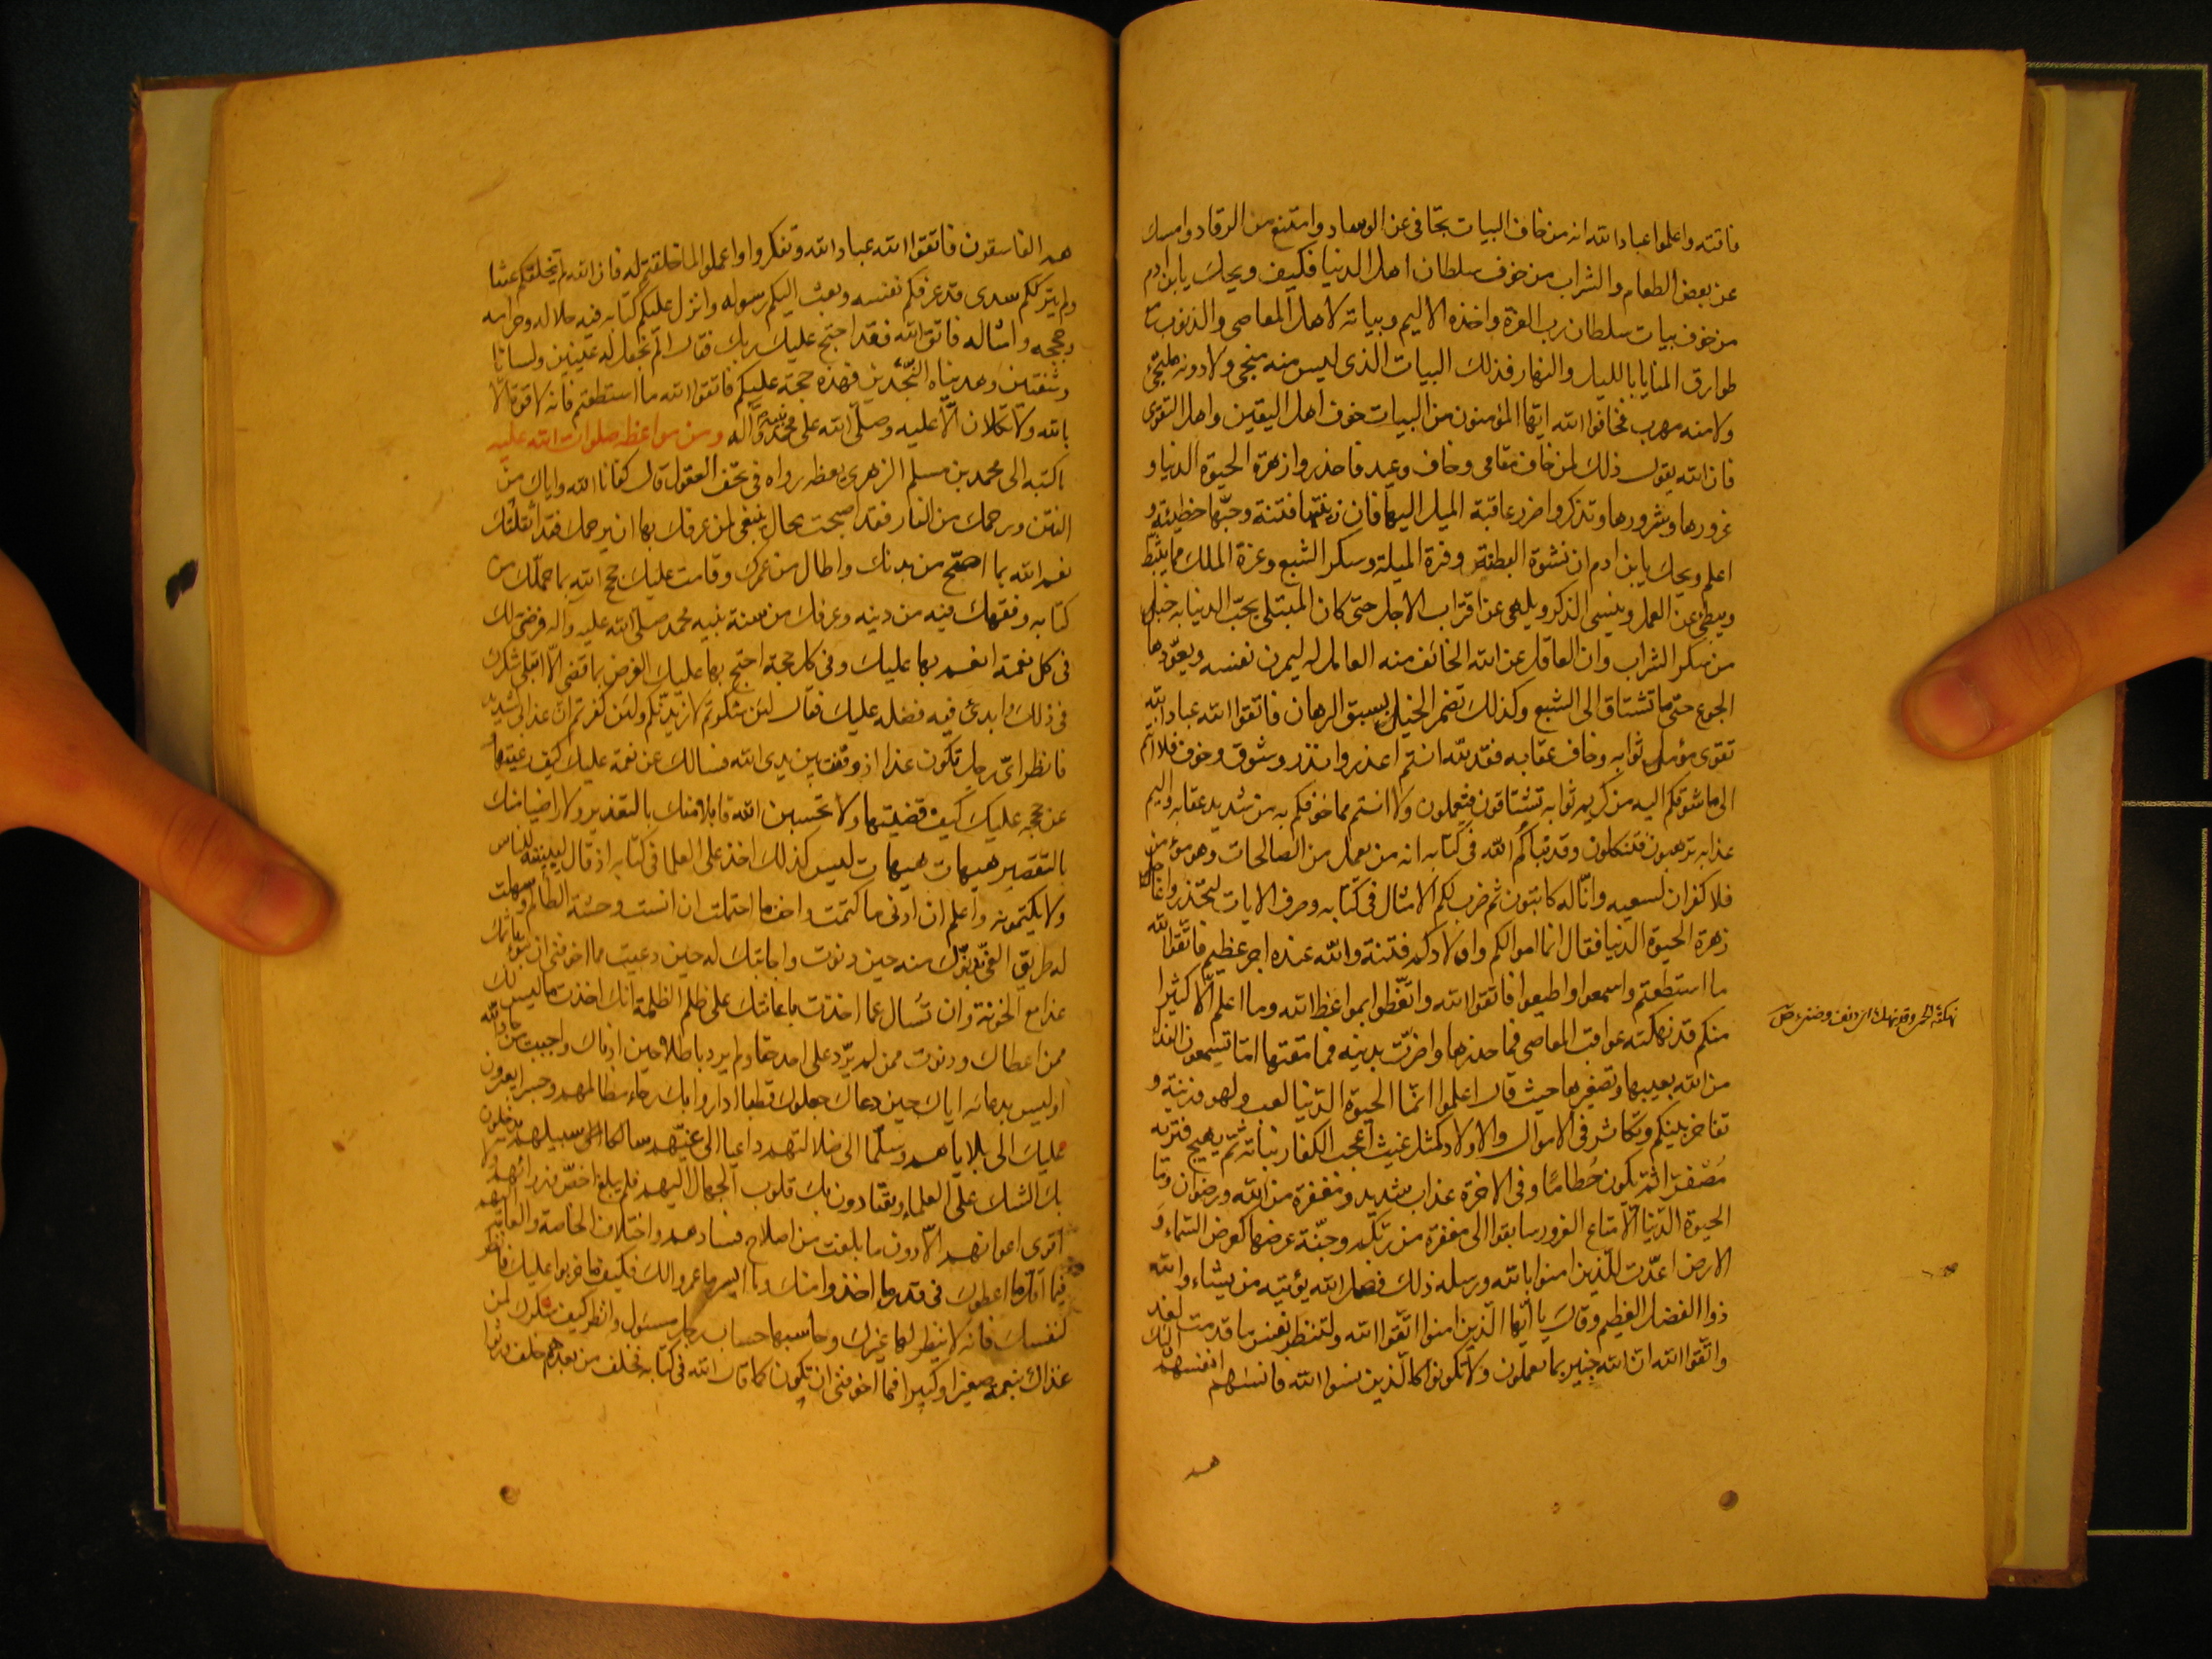 فاقته واعلموا عباد الله انه من خاف البيات تجافى عن الوساد وامتنع من الرقاد وامسك
عن بعض الطعام والشراب من خوف سلطان اهل الدنيا فكيف ويحك يابن ادم
من خوف بيات سلطان رب العزة واخذه الاليم وبياته لاهل المعاصى والذنوب مع
طوارق المنايا بالليل والنهار فذلك البيات الذى ليس منه منجى ولا دونه ملتجئ
ولا منه مهرب فخافوا الله ايها المؤمنون من البيات خوف اهل اليقين واهل التقوى
فان الله يقول ذلك لمن خاف مقامى وخاف وعيد فاحذروا زهرة الحيوة الدنيا و
غرورها وشرورها وتذكروا ضرر عاقبة الميل اليها فان زينتها فتنة وحبّها خطيئة و
اعلم ويحك يابن ادم ان نشوة البطنة وفترة الميلة وسكر الشبع وعزة الملك مما يثبط
ويبطئ عن العمل وينسى الذكر ويلهى عن اقتراب الاجل حتى كان المبتلى بحبّ الدنيا به خبل
من سكر الشراب وان العاقل عن الله الخائف منه العامل له ليمرن نفسه ويعوّدها
الجوع حتى ما تشتاق الى الشبع وكذلك تضمر الخيل لسبق الرهان فاتقوا الله عباد الله
تقوى مؤمل ثوابه وخاف عقابه فقد لله انتم اعذر وانذر وشوق وخوف فلا انتم
الى ما شوقكم اليه من كريم ثوابه تشتاقون فتعملون ولا انتم مما خوفكم به من شديد عقابه واليم
عذابه ترهبون فتنكلون وقد نبّأكم الله فى كتابه انه من يعمل من الصالحات وهو مؤمن
فلا كفران لسعيه وانّا له كاتبون ثم ضرب لكم الامثال فى كتابه وصرف الايات لتحذروا عاجل
زهرة الحيوة الدنيا فقال انما اموالكم واولادكم فتنة والله عنده اجر عظيم فاتّقوا الله
ما استطعتم واسمعوا واطيعوا فاتقوا الله واتّعظوا بمواعظ الله وما اعلم الّا كثيرا
منكم قد نهكته عواقب المعاصى فما حذرها واضرّت بدينه فما مقتها اما تسمعون النداء
من الله بعيبها وتصغيرها حيث قال اعلموا انّما الحيوة الدّنيا لعب ولهو وزينة و
تفاخر بينكم وتكاثر فى الاموال والاولاد كمثل غيث اعجب الكفار نباته ثم يهيج فتريه
مُصْفرّا ثمّ يكون حُطامًا وفى الاخرة عذاب شديد ومغفرة من الله ورضوان وما
الحيوة الدّنيا الّا متاع الغرور سابقوا الى مغفرة من ربّكم وجنّة عرضها كعرض السّماء وَ
الارض اعدّت للّذين امنوا بالله ورسله ذلك فضل الله يؤتيه من يشاء والله
ذوا الفضل العظيم وقال يا ايّها الّذين امنوا اتّقوا الله ولتنظر نفس ما قدمت لغد
واتّقوا الله انّ الله خبير بما تعملون ولا تكونوا كالّذين نسوا الله فانسٰهم انفسهم اولٰئك
هم
هم الفاسقون فاتقوا الله عباد الله وتفكروا واعملوا لما خلقتم له فان الله لم يخلقكم عبثا
ولم يترككم سدى قد عرفكم نفسه وبعث اليكم رسوله وانزل عليكم كتابه فيه حلاله وحرامه
وحججه وامثاله فاتقوا الله فقد احتج عليكم ربكم فقال الم نجعل له عينين ولسانا
وشفتين وهديناه النّجدين فهذه حجة عليكم فاتقوا الله ما استطعتم فانه لا قوة الّا
بالله ولا تكلان الّا عليه وصلّى الله على محمّد نبيّه وآله ومن مواعظه صلوات الله عليه
ما كتبه الى محمد بن مسلم الزهرى يعظه رواه فى تحف العقول قال كفانا الله واياك من
الفتن ورحمك من النار فقد اصبحت بحال ينبغى لمن عرفك بها ان يرحمك فقد اثقلتك
نعم الله بما اصحّ من بدنك واطال من عمرك وقامت عليك حجج الله بما حملك من
كتابه وفقهك فيه من دينه وعرفك من سنة نبيه محمد صلى الله عليه وآله فرضى لك
فى كل نعمة انعم بها عليك وفى كل حجة احتج بها عليك الفرض بما قضى الّا ابتلى شكرك
فى ذلك وابدئ فيه فضله عليك فقال لئن شكرتم لازيدنّكم ولئن كفرتم انّ عذابى لشديد
فانظر اىّ رجل تكون غدا اذا وقفت بين يدى الله فسالك عن نعمه عليك كيف رعيتها
عن حججه عليك كيف قضيتها ولا تحسبن الله قابلا منك بالتعذير ولا راضيا منك
بالتقصير هيهات هيهات ليس كذلك اخذ على العلما فى كتابه اذ قال ليبيّننّه للناس
ولا يكتمونه واعلم ان ادنى ما كتمت واخف ما احتملت ان انست وحشة الظالم وسهلت
له طريق الغىّ بدنوّك منه حين دنوت واجابتك له حين دعيت فما اخوفنى ان تبوء باثمك
غدا مع الخونة وان تُسال عما اخذت باعانتك على ظلم الظلمة انك اخذت ما ليس لك
ممن اعطاك ودنوت ممن لم يردّ على احد حقا ولم يرد باطلا حين ادناك واجبت من حادّ الله
اوليس بدعائه اياك حين دعاك جعلوك قطبا اداروا بك رحاء مظالمهم وجسرا يعبرون
عليك الى بلاياهم وسلّما الى ضلالتهم داعيا الى غيّهم سالكا سبيلهم يدخلون
بك الشك على العلماء ويقتادون بك قلوب الجهال اليهم فلم يبلغ اخصّ وزرائهم ولا
اقوى اعوانهم الّا دون ما بلغت من اصلاح فسادهم واختلاف الخاصة والعامة اليهم
فما اقلّ ما اعطوك فى قدر ما اخذوا منك وما ايسر ما عمروا لك فكيف ما خربوا عليك فانظر
لنفسك فانه لا ينظر لها غيرك وحاسبها حساب رجل مسئول وانظر كيف شكرك لمن
غذاك بنعمه صغيرا وكبيرا فما اخوفنى ان تكون كما قال الله فى كتابه فخلف من بعدهم خلف ورثوا